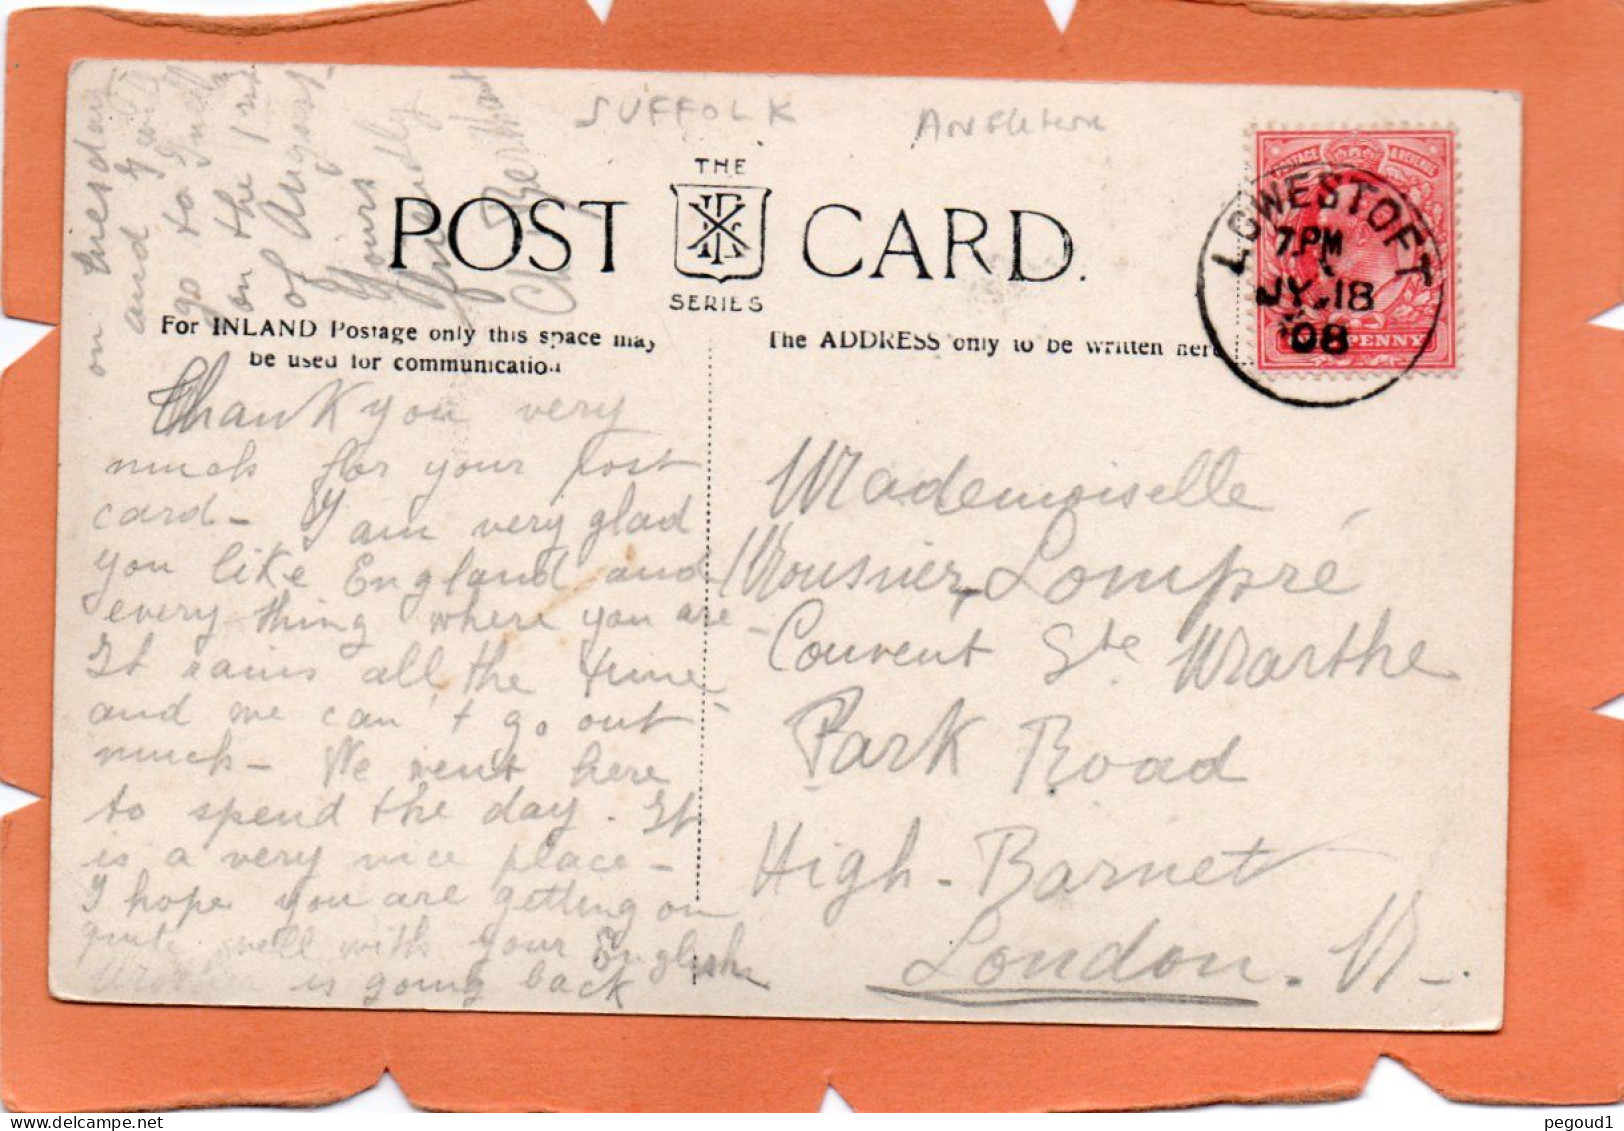 SUFFOLK
Angleterre
POST CARD.
THE
SERIES
For INLAND Postage only this space may
be used for communication
The ADDRESS only to be written here
POSTAGE & REVENUE
ONE PENNY
LOWESTOFT
7.PM
JY.18
08
Thank you very
much for your post
card - I am very glad
you like England and
every thing where you are -
It rains all the time
and we can't go out
much - We went here
to spend the day. It
is a very nice place -
I hope you are getting on
quite well with your English
is going back
on tuesday
and I
go to
on the 1
of August -
Yours
friendly
Mademoiselle
Lompré
Couvent Ste Marthe
Park Road
High-Barnet
London. N -
pegoud1